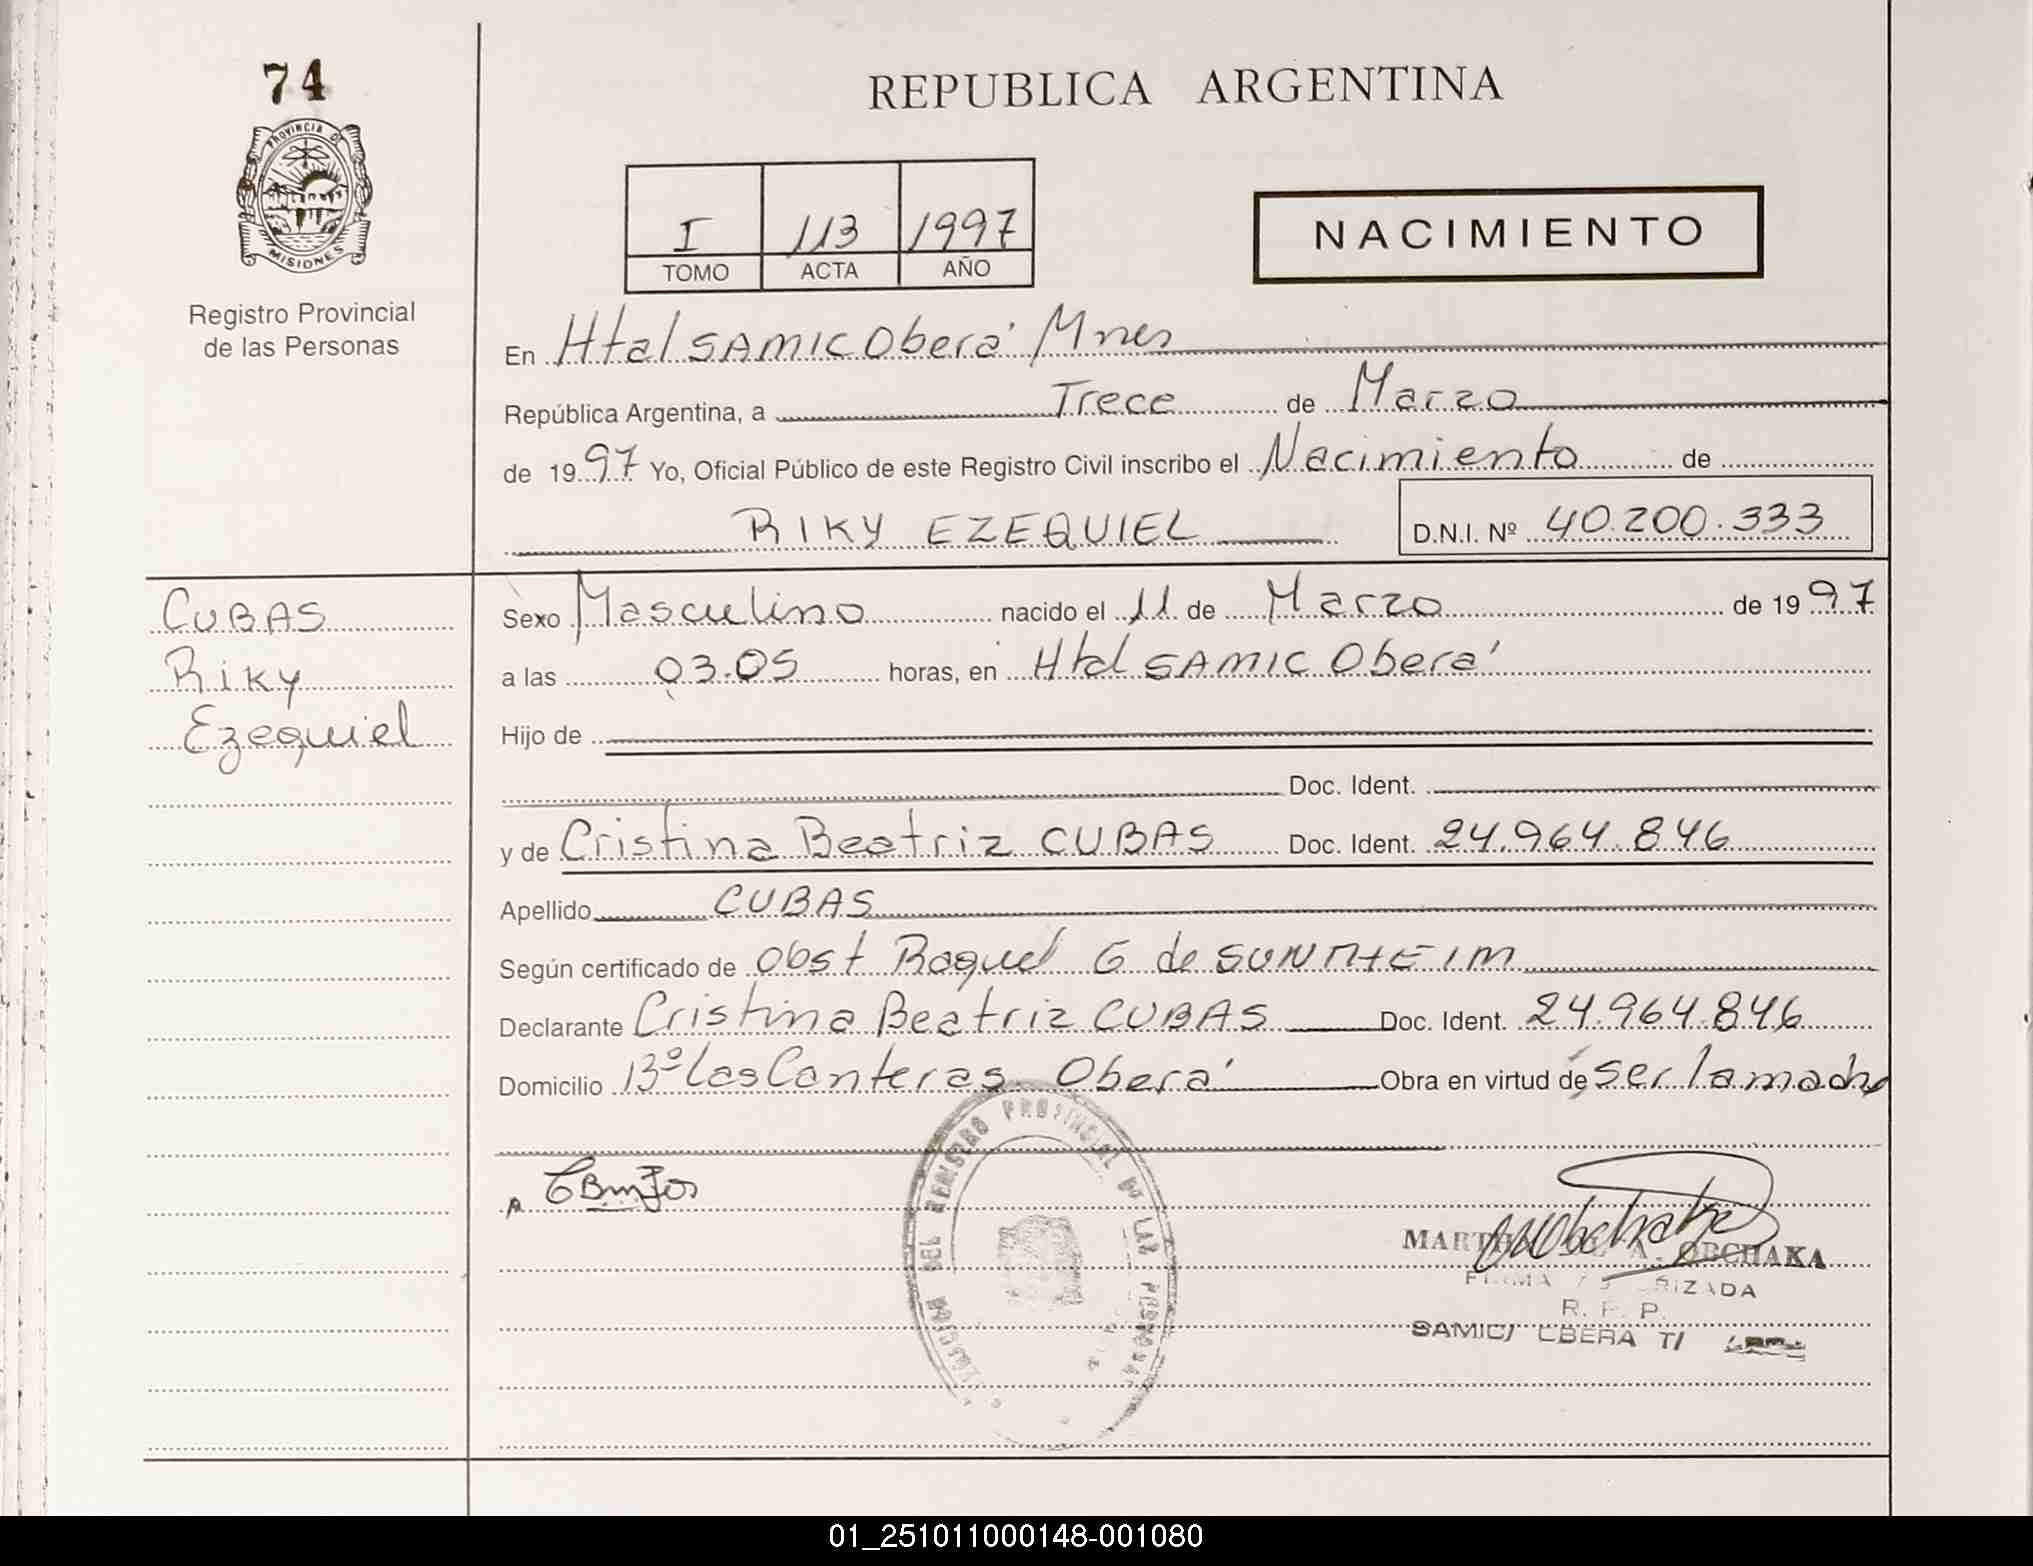 74
PROVINCIA DE
MISIONES
Registro Provincial
de las Personas
REPUBLICA ARGENTINA
I 113 1997
TOMO ACTA AÑO
NACIMIENTO
En Htal SAMIC Oberá Mnes
República Argentina, a Trece de Marzo
de 1997 Yo, Oficial Público de este Registro Civil inscribo el Nacimiento de
RIKY EZEQUIEL D.N.I. Nº 40.200.333
CUBAS
Riky
Ezequiel
Sexo Masculino nacido el 11 de Marzo de 1997
a las 03.05 horas, en Htal SAMIC Oberá
Hijo de
Doc. Ident.
y de Cristina Beatriz CUBAS Doc. Ident. 24.964.846
Apellido CUBAS
Según certificado de Obst Raquel G de
Declarante Cristina Beatriz CUBAS Doc. Ident. 24.964.846
Domicilio Bº Las Canteras Oberá Obra en virtud de ser la madre
REGISTRO PROVINCIAL DE LAS PERSONAS
A. OBCHAKA
R. P. P.
01_251011000148-001080